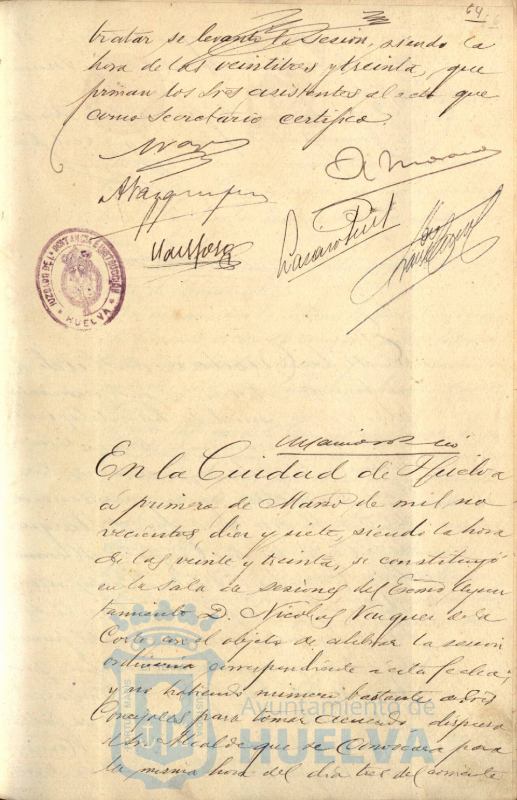 64
tratar se levanta la Sesión, siendo la
hora de las veintitres y treinta, que
firman los Sres asistentes al acto que
como Secretario certifico.
A Moreno
A Vazquez
Lazaro Puit
JUZGADO DE 1ª INSTANCIA E INSTRUCCIÓN
HUELVA
En la Ciudad de Huelva
a primero de Marzo de mil no
vecientos diez y siete, siendo la hora
de las veinte y treinta, se constituyó
en la sala de sesiones del Excmo Ayun
tamiento D. Nicolas Vazquez de la
Corte con el objeto de celebrar la sesion
ordinaria correspondiente a esta fecha;
y no habiendo numero bastante de Sres
Concejales para tomar acuerdo dispuso
el Sr Alcalde que se convocara para
la misma hora del dia tres del corriente
Ayuntamiento de
HUELVA